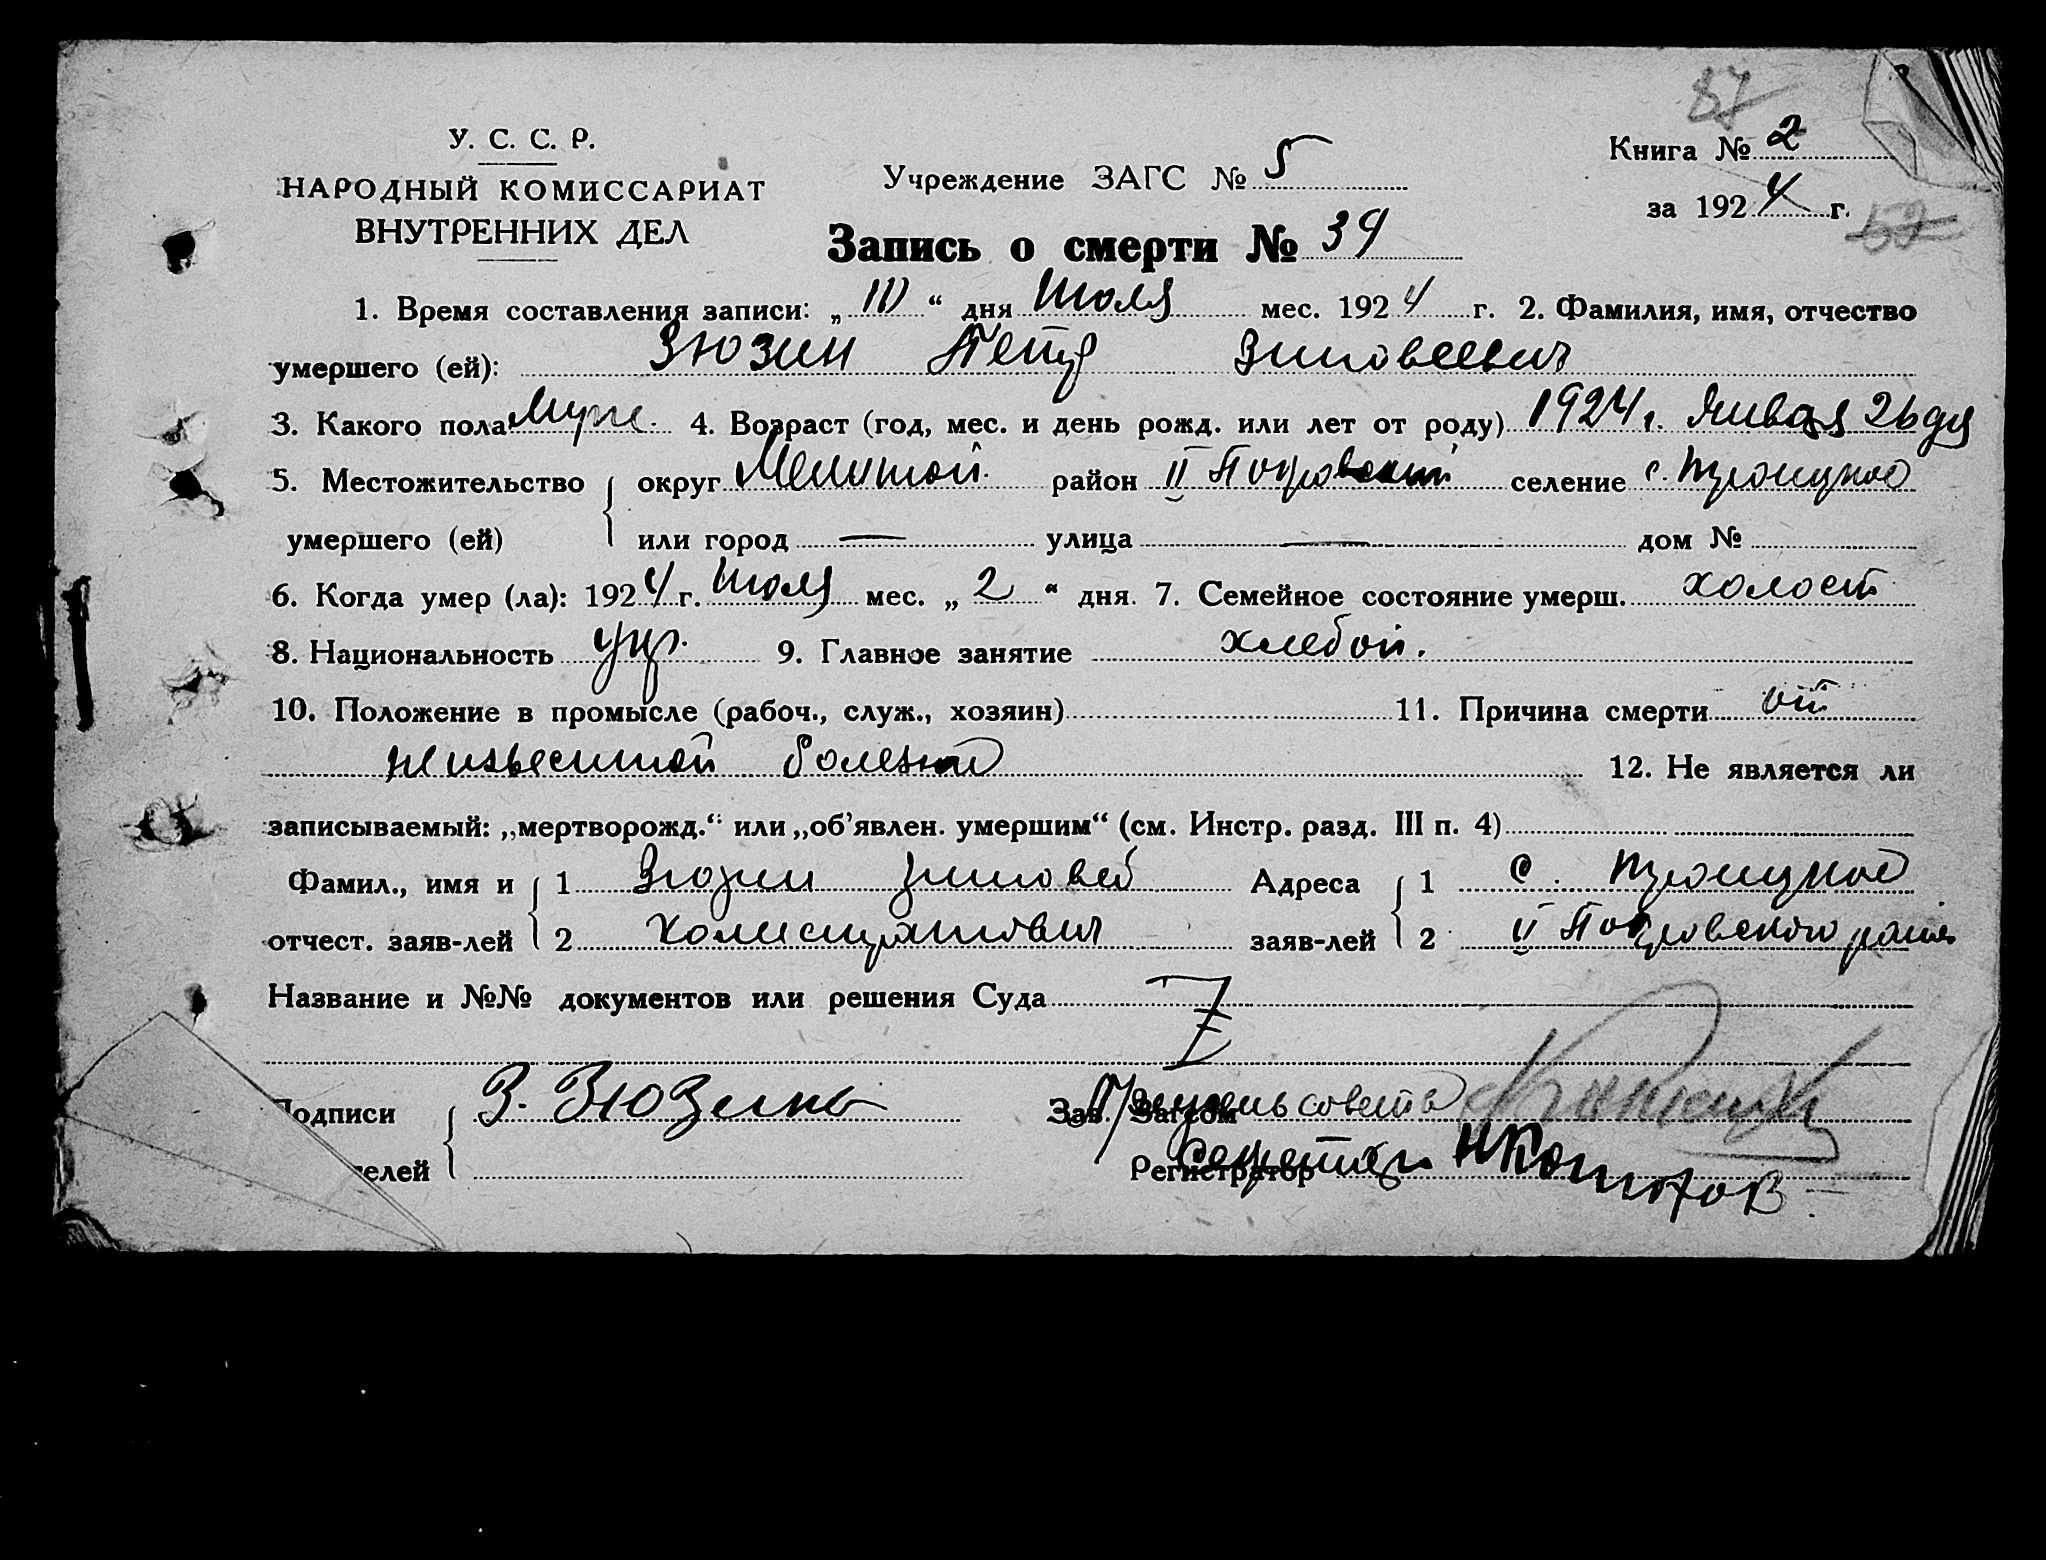 87
У. С. С. Р.
НАРОДНЫЙ КОМИССАРИАТ
ВНУТРЕННИХ ДЕЛ
Учреждение ЗАГС № 5
Книга № 2
за 1924 г.
59
Запись о смерти № 39
1. Время составления записи: „ III “ дня Июля мес. 1924 г. 2. Фамилия, имя, отчество
умершего (ей): Зюзин Петр Зиновеевич
3. Какого пола Муж. 4. Возраст (год, мес. и день рожд. или лет от роду) 1924 г. Января 26 дня
5. Местожительство округ Мелитой. район II Покровский селение с. Троицкое
умершего (ей) или город — улица — дом №
6. Когда умер (ла): 1924 г. Июля мес. „ 2 “ дня. 7. Семейное состояние умерш. холост
8. Национальность укр. 9. Главное занятие хлебой.
10. Положение в промысле (рабоч., служ., хозяин) 11. Причина смерти от
неизвестной болезни 12. Не является ли
записываемый: „мертворожд.“ или „об’явлен. умершим“ (см. Инстр. разд. III п. 4)
Фамил., имя и 1 Зюзин Зиновей Адреса 1 с. Троицкое
отчест. заяв-лей 2 Холистратович заяв-лей 2 II Покровского район
Название и №№ документов или решения Суда
Подписи З. Зюзинъ Зав. Загсом Предсельсовета
телей Регистратор Секретарь